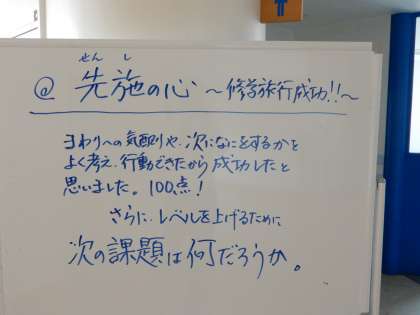 せん し
@ 先施の心 ～修学旅行成功!!～
まわりへの気配りや、次になにをするかを
よく考え、行動できたから成功したと
思いました。100点!
さらに、レベルを上げるために
次の課題は何だろうか。